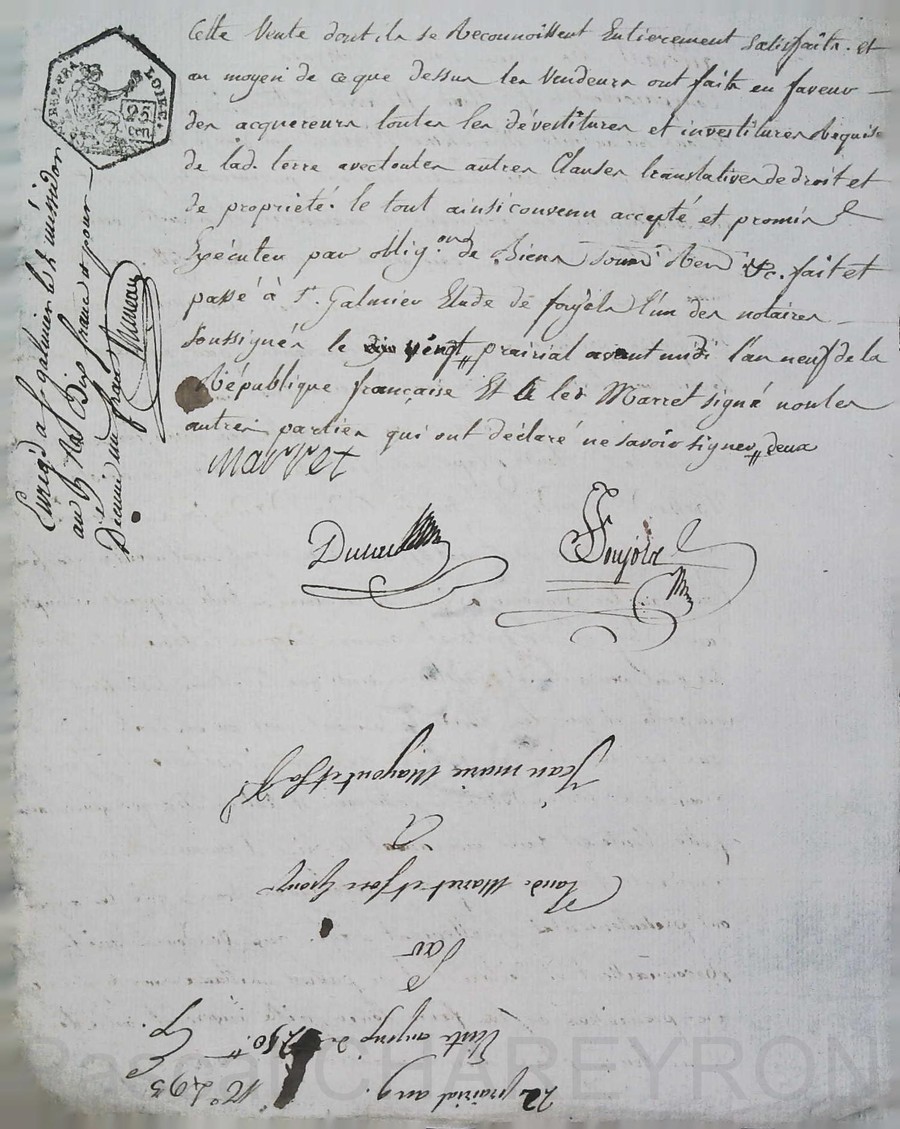 Cette Vente dont ils se Reconnoissent Entierement satisfaits. et
au moyen de ce que dessus les Vendeurs ont faits en faveur
des acquereurs toutes les dévestitures et investitures Requise
de lad. terre avec toutes autres Clauses translatives de droit et
de propriété. le tout ainsi convenu accepté et promis
Exécuter par oblig.ons de Biens &c. fait et
passé à St. Galmier Etude de foujols l'un des notaires
soussignés le vingt prairial avant midi l'an neuf de la
République française Et led Marret signé non les
autres parties qui ont déclaré ne savoir signer deux
marret
foujols
LOIRE
25
cen
Enreg. a St galmier le 2 messidor
an 9 Dix francs pour
Decime un franc
Jean marie et sa
A
Claude Maret et
Par
Vente an 9 de 250.tt
prairial an 9. N.° 293
Pascal CHABEYRON